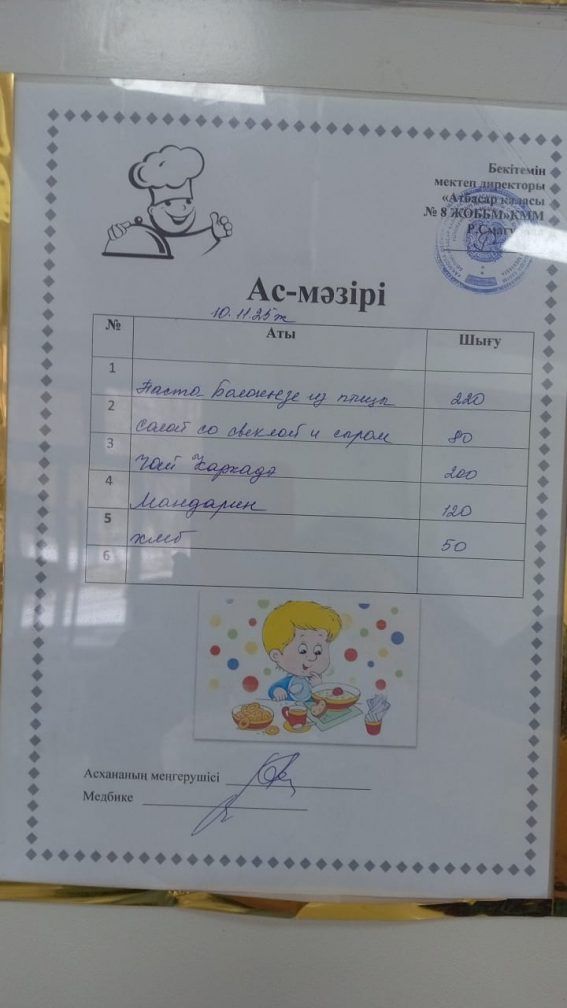 Бекітемін
мектеп директоры
«Атбасар қаласы
№ 8 ЖОББМ»КММ
Ас-мәзірі
10.11.25ж
№ Аты Шығу
1 Паста Балоньезе из птицы 220
2 Салат со свеклой и сыром 80
3 Чай Каркадэ 200
4 Мандарин 120
5 хлеб 50
6
Асхананың меңгерушісі
Медбике